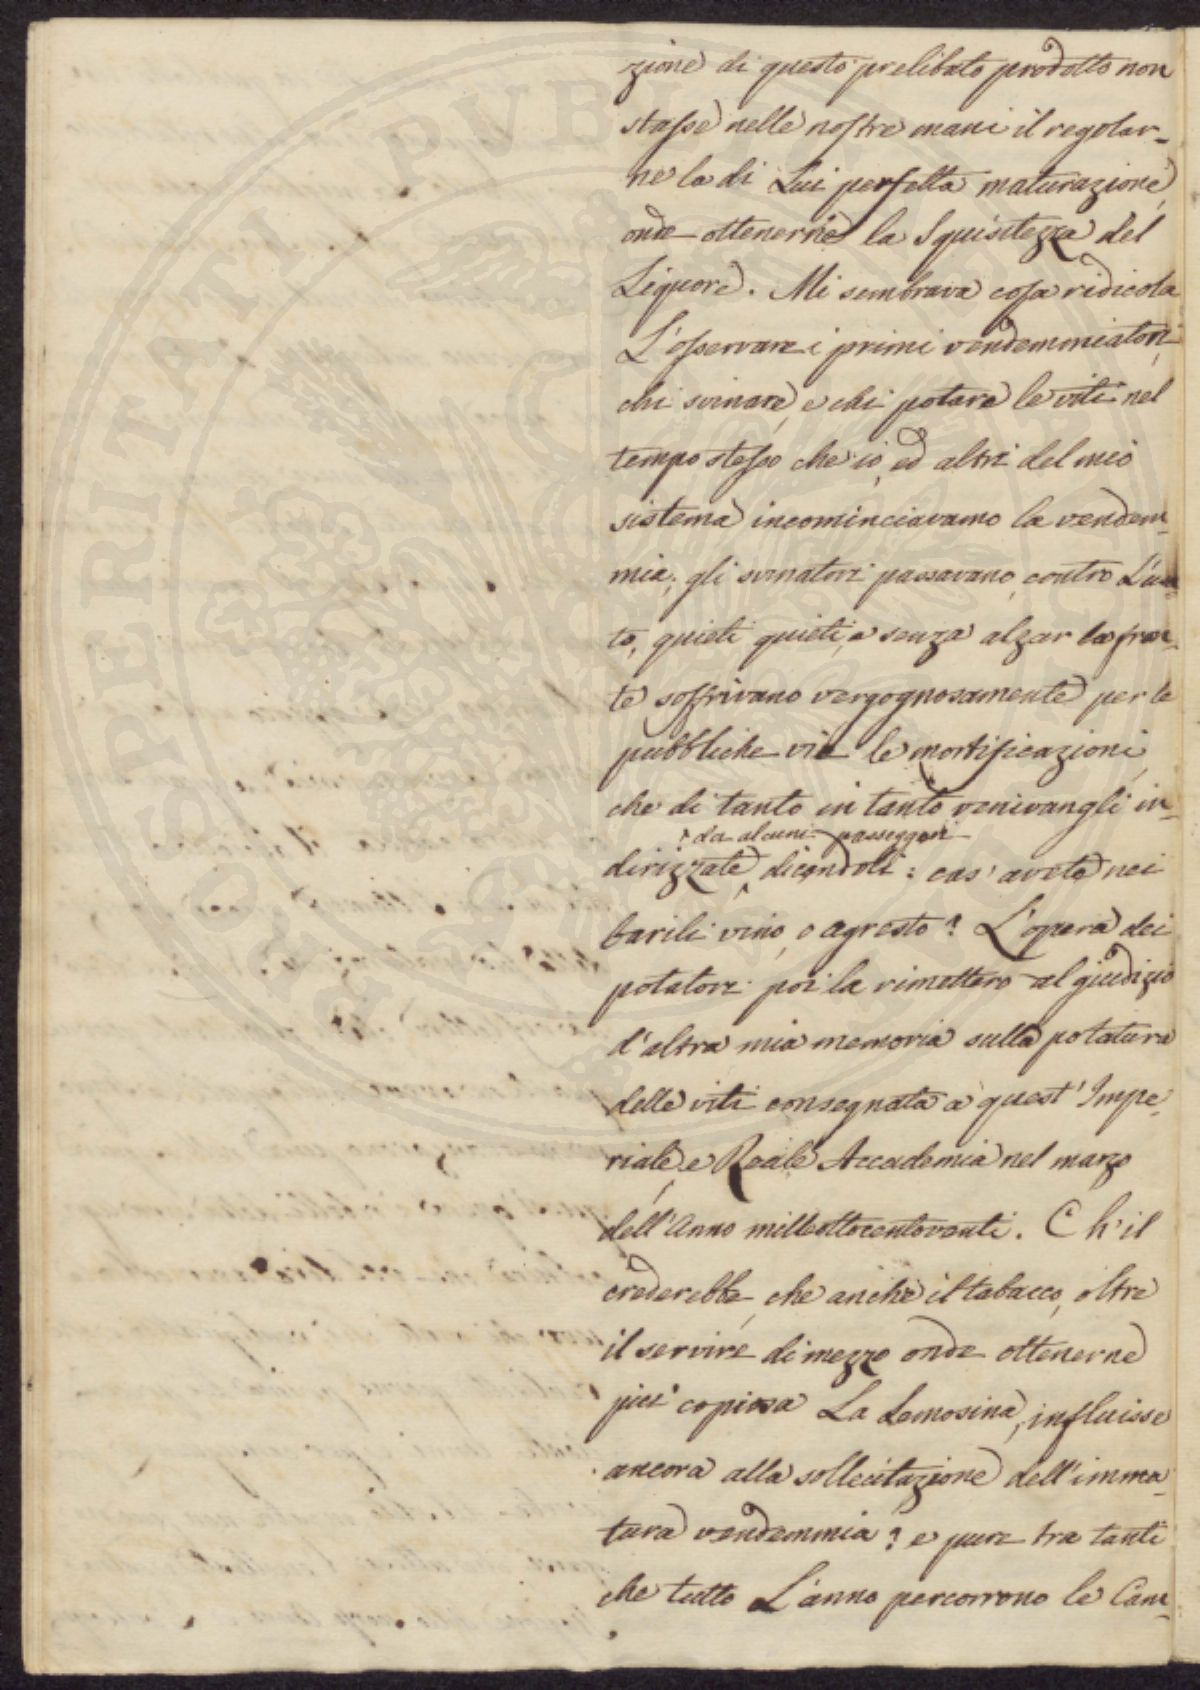 zione di questo prelibato prodotto non
stasse nelle nostre mani il regolar-
ne la di Lui perfetta maturazione,
onde ottenerne la Squisitezza del
Liquore. Mi sembrava cosa ridicola
L'osservare i primi vendemmiatori,
chi svinare, e chi potare le viti nel
tempo stesso che io, ed altri del mio
sistema incominciavamo la vendem-
mia; gli svinatori passavano, contro L'usa-
to, quieti quieti, e senza alzar la fron-
te soffrivano vergognosamente per le
pubbliche vie le mortificazioni,
che di tanto in tanto venivangli in-
da alcuni passeggeri
dirizzate, dicendoli: cos' avete nei
barili vino, o agresto? L'opera dei
potatori poi la rimettero al giudizio
d'altra mia memoria sulla potatura
delle viti consegnata a quest' Impe-
riale, e Reale Accademia nel marzo
dell'Anno milleottocentoventi. Ch'il
crederebbe, che anche il tabacco, oltre
il servire di mezzo onde ottenerne
piu' copiosa La Lemosina, influisse
ancora alla sollecitazione dell'imma-
tura vendemmia? e pure tra tanti
che tutto L'anno percorrono le Cam-
PERITATI PVBLIC